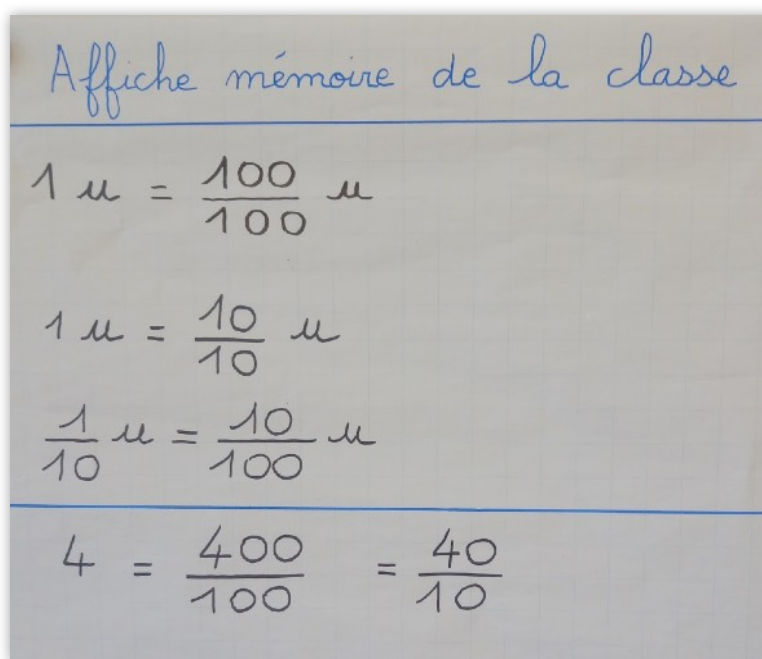 Affiche mémoire de la classe
1 u = 100/100 u
1 u = 10/10 u
1/10 u = 10/100 u
4 = 400/100 = 40/10